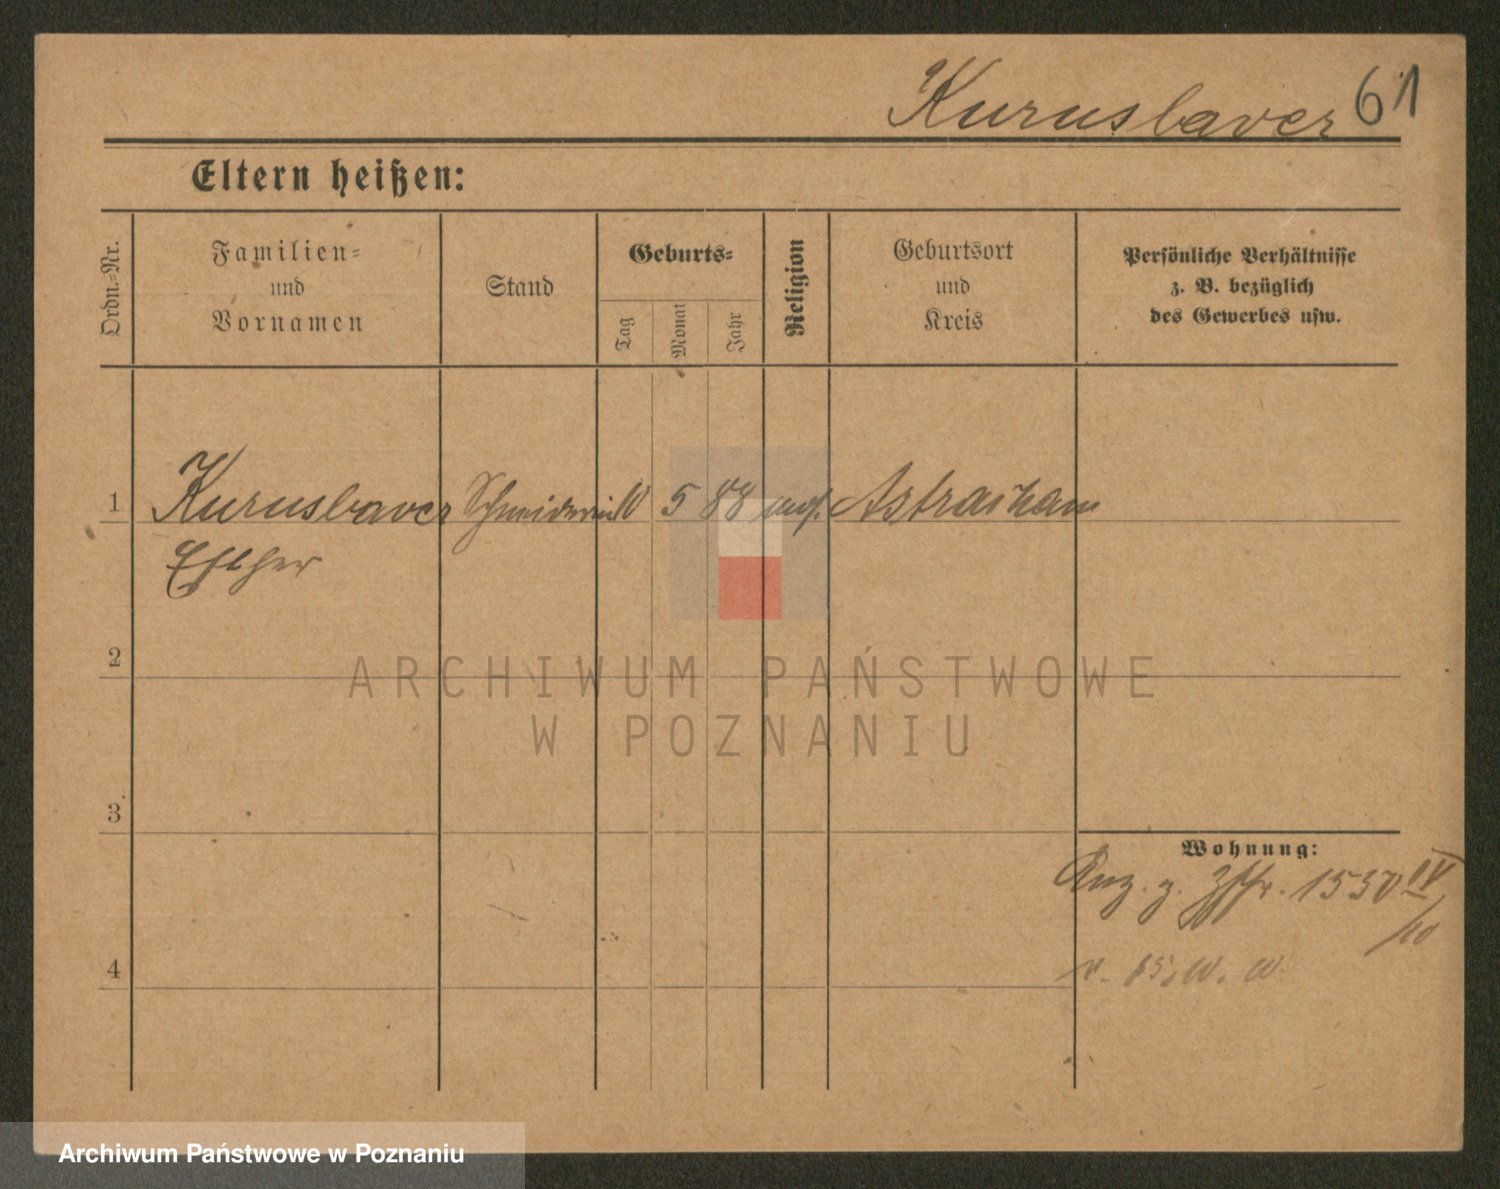 Kuruslaver 61
Eltern heißen:
Ordn.-Nr.
Familien-
und
Vornamen
Stand
Geburts-
Tag
Monat
Jahr
Religion
Geburtsort
und
Kreis
Persönliche Verhältnisse
z. B. bezüglich
des Gewerbes usw.
1 Kuruslaver 5 88 Astrachan
Esther
2
3
4
Wohnung:
1530 IV
ARCHIWUM PAŃSTWOWE
W POZNANIU
Archiwum Państwowe w Poznaniu